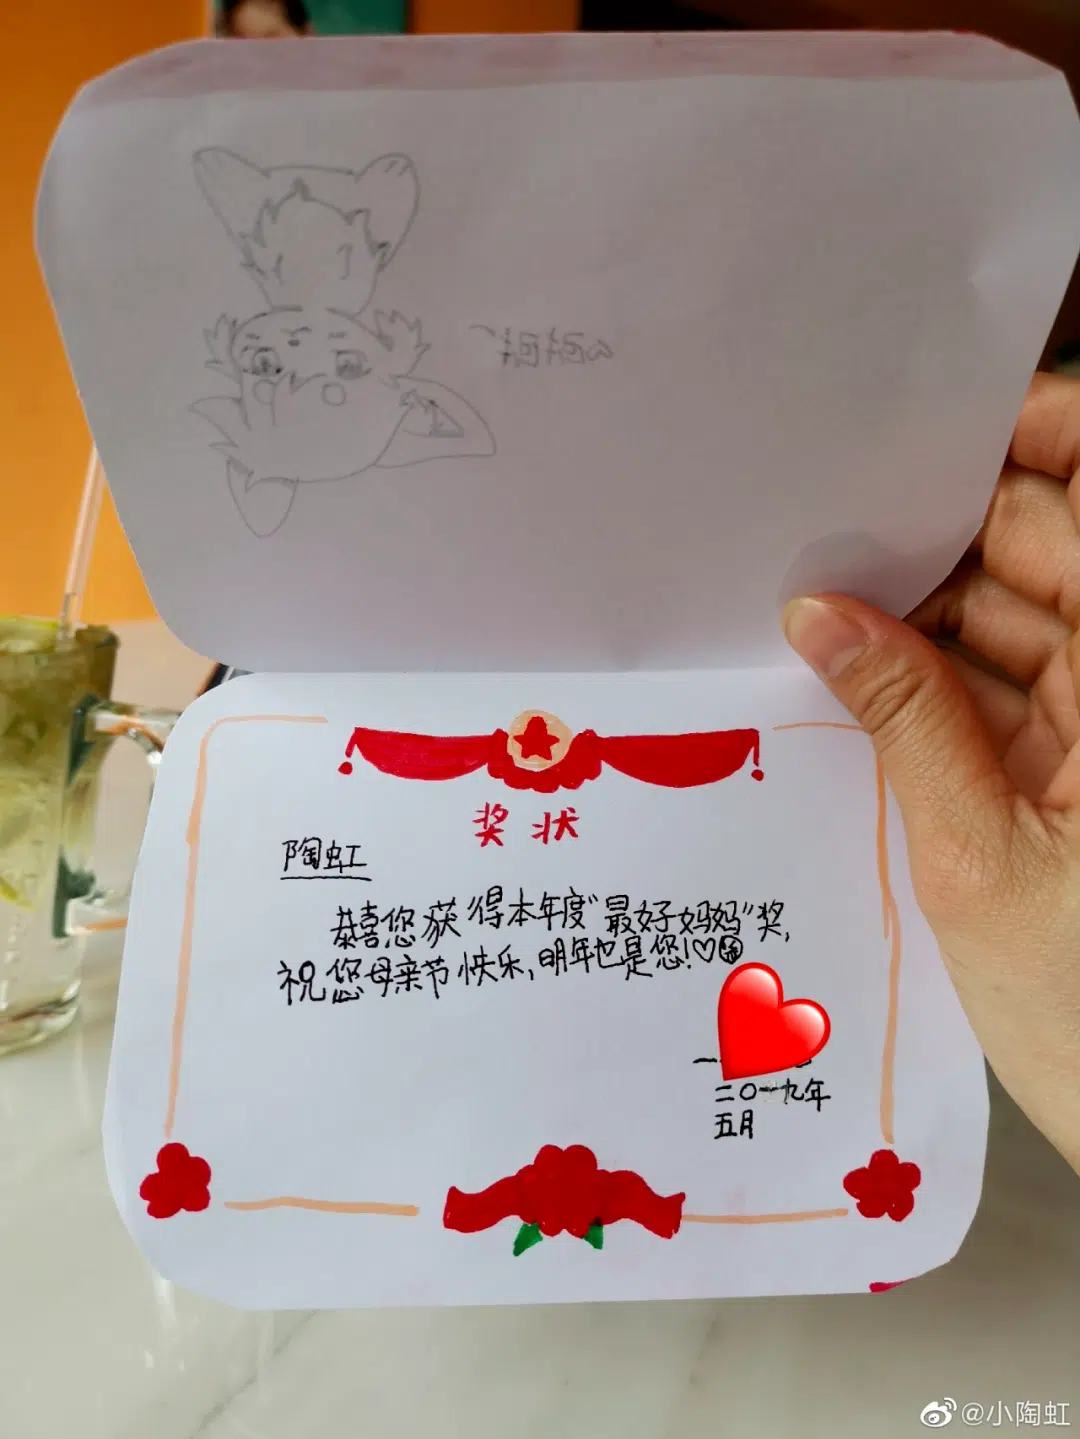 奖状
陶虹
恭喜您获得本年度“最好妈妈”奖,
祝您母亲节快乐,明年也是您!♡
二〇一九年
五月
@小陶虹